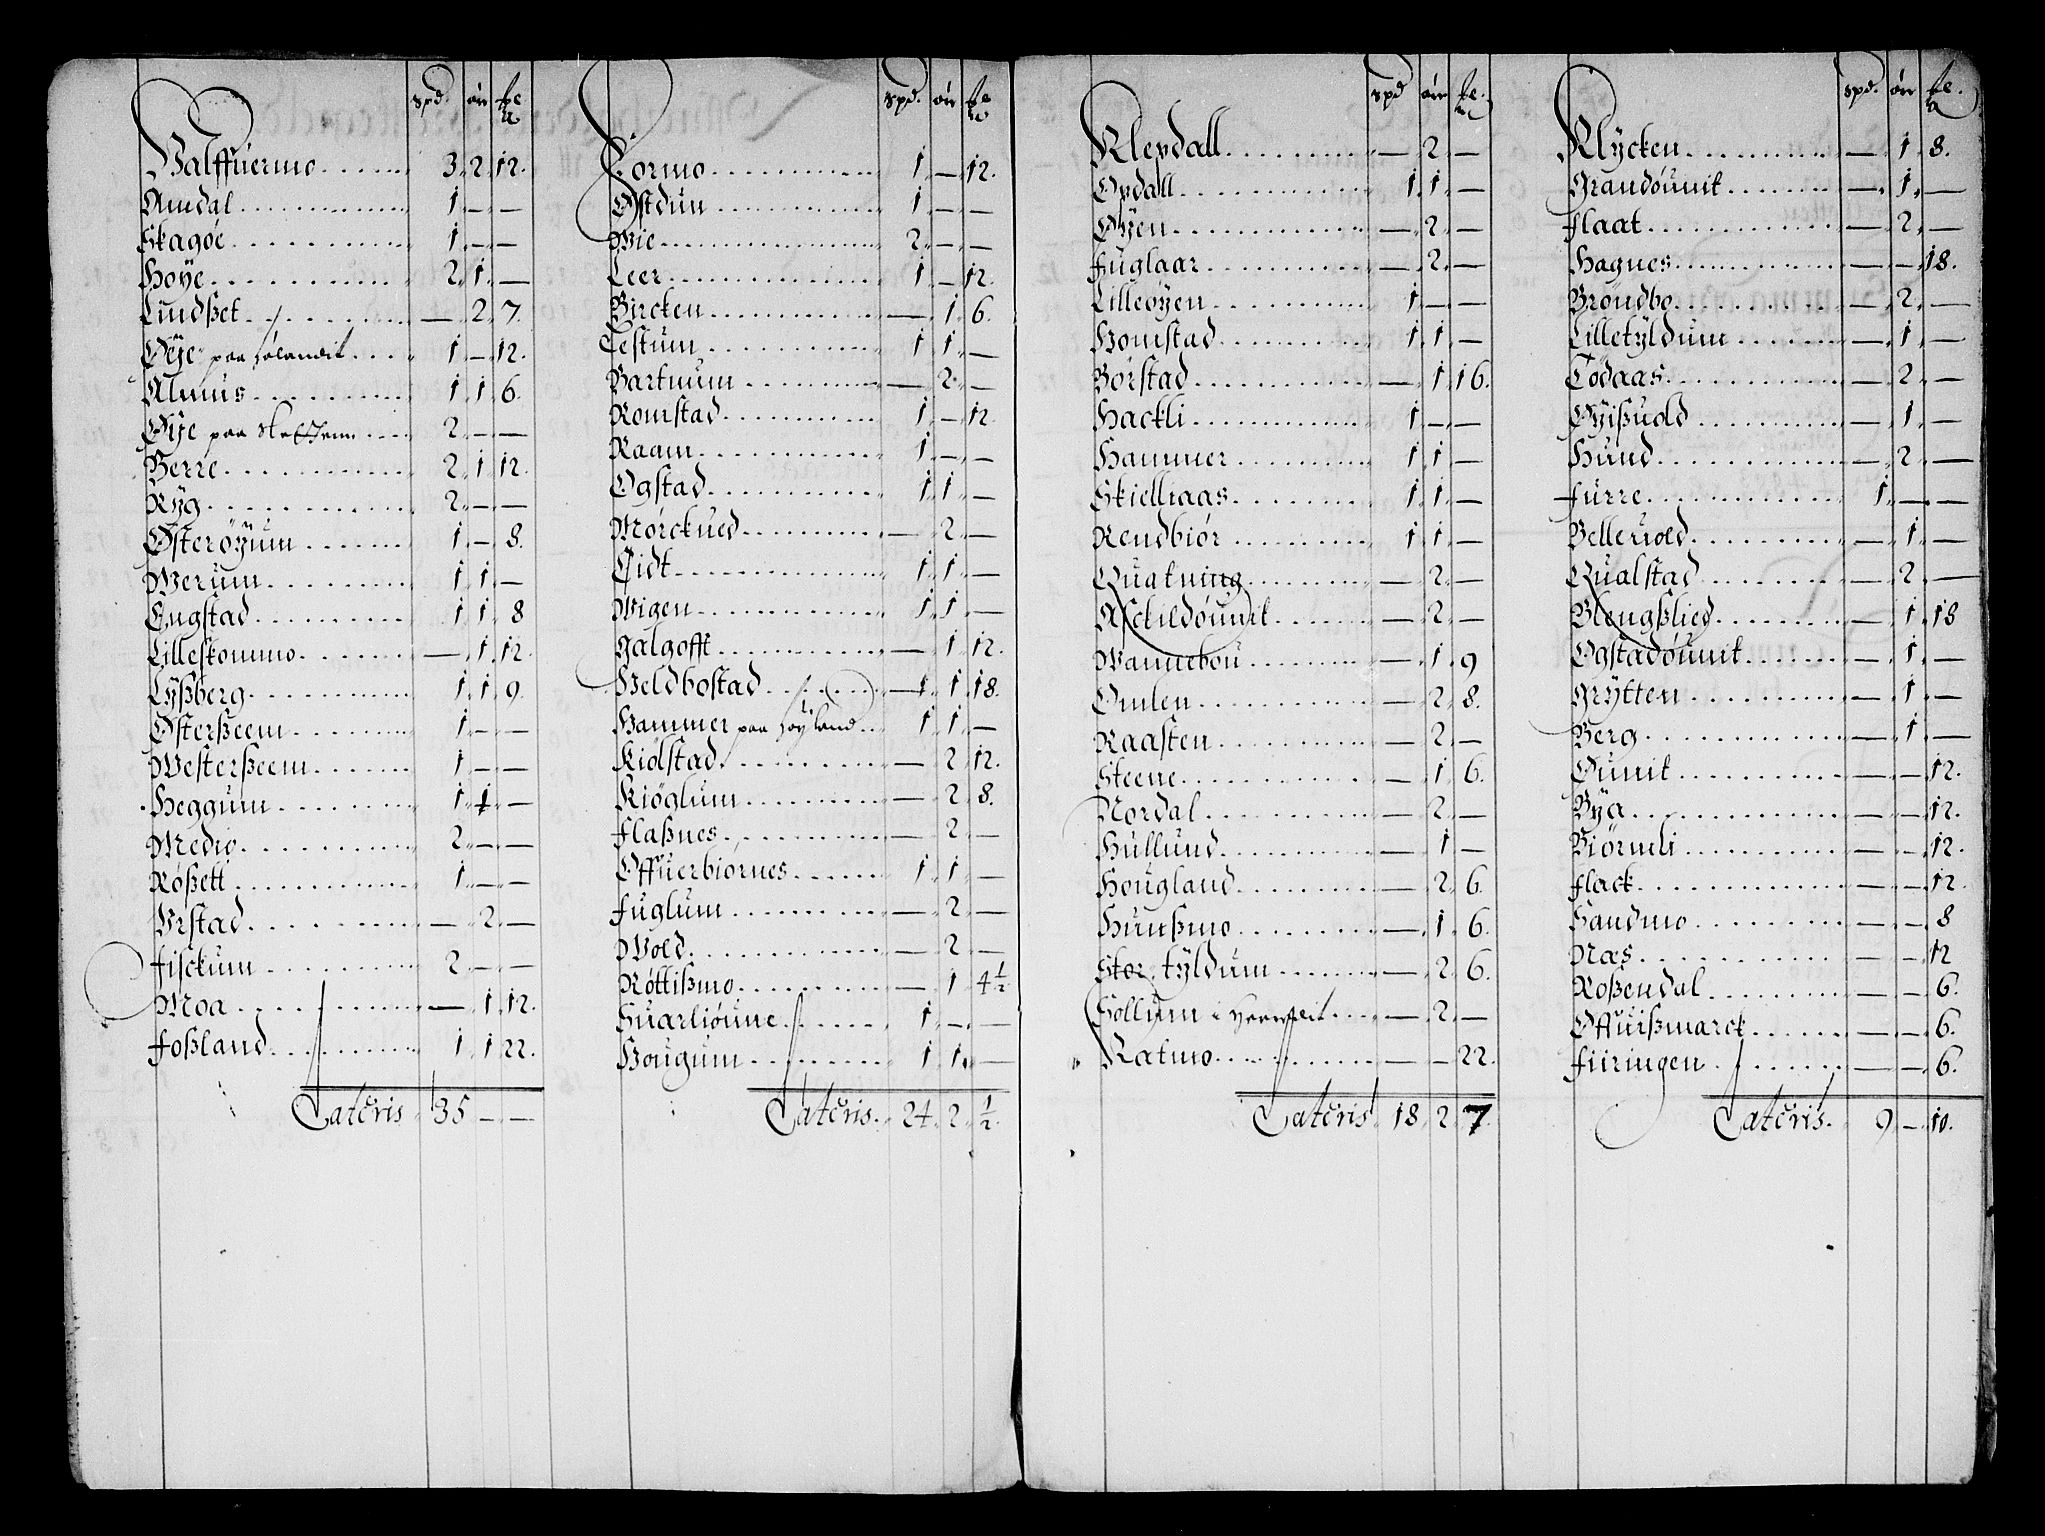 spd. ør
Valffuermo 3. 2. 12.
Amdal 1. — —
Skagøe 1. — —
Høye 2. 1. —
Lundßet — 2. 7.
Øye paa 1. — 12.
Almus 1. 1. 6.
Øye paa 2. — —
Berre 2. 1. 12.
Ryg 2. — —
Østerøyum 1. — 8.
Werum 1. 1. —
Engstad 1. 1. 8
Lilleskommo — 1. 12.
Lyßberg 1. 1. 9.
Østerßeem 1. — —
Westerßeem 1. — —
Heggum 1. 1. —
Medio 2. — —
Røßett 1. — —
Vrstad — 2. —
Fisckum 2. — —
Moa — 1. 12.
Foßland 1. 1. 22.
Lateris 35 — —
spd. ør
Formo 1. — 12.
Østdun 1. — —
Wie 2. — —
Leer 1. — 12.
Bircken — 1. 6.
Lestum 1. 1. —
Bartnum — 2. —
Romstad 1. — 12.
Raam 1. — —
Ogstad 1. 1. —
Mørckued — 2. —
Eidt 1. 1. —
Wigen 1. 1. —
Galgofft — 1. 12.
Heldbostad 1 1. 18.
Hammer paa Høyland 1 1. —
Kiølstad — 2 12.
Kiøglum — 2 8.
Flaßnes — 2. —
Offuerbiørnes 1. 1. —
Fuglum — 2. —
Wold — 2. —
Røttißmo — 1 4½
Suarliøune 1. — —
Hougum 1. 1. —
Lateris. 24. 2. ½.
spd ør
Klepdall — 2. —
Opdall 1. 1. —
Øyen — 2. —
Fuglaar — 2. —
Lilleøyen 1. — —
Homstad 1. 1. —
Børstad — 1. 16.
Hackli 1. — —
Hammer 1. 1. —
Skiellraas 1. 1. —
Rendbiør 1. 1. —
Quatning — 2. —
Asckildøunit — 2. —
Wannebou — 1. 9
Omlen — 2. 8.
Raasten — 2. —
Steene — 1. 6.
Nordal — 2. —
Hullund — 1 —
Hougland — 2. 6.
Hunßmo — 1. 6.
Stor tyldum — 2. 6.
Sollum i — 2. —
Ratmo — — 22.
Lateris 18. 2. 7.
spd. ør
Klycken — 1. 8.
Grandøunit — 1. —
Flaat — 2. —
Hagnes — — 18.
Brøndbo — 2. —
Lilletyldum — 1. —
Tødaas — 2. —
Øyißuold — 1. —
Hund — 2. —
Furre 1. — —
Belleruold — 1. —
Qualstad — 2. —
Blengßlied — 1. 18
Ogstadøunit — 1. —
Grytten — 1. —
Berg — 1. —
Øunit — — 12.
Bya — — 12.
Biørnli — — 12.
Flack — — 12.
Sandmo — — 8
Næs — — 12
Roßendal — — 6.
Offuißmarck — — 6.
Fiiringen — — 6.
Lateris. 9. — 10.